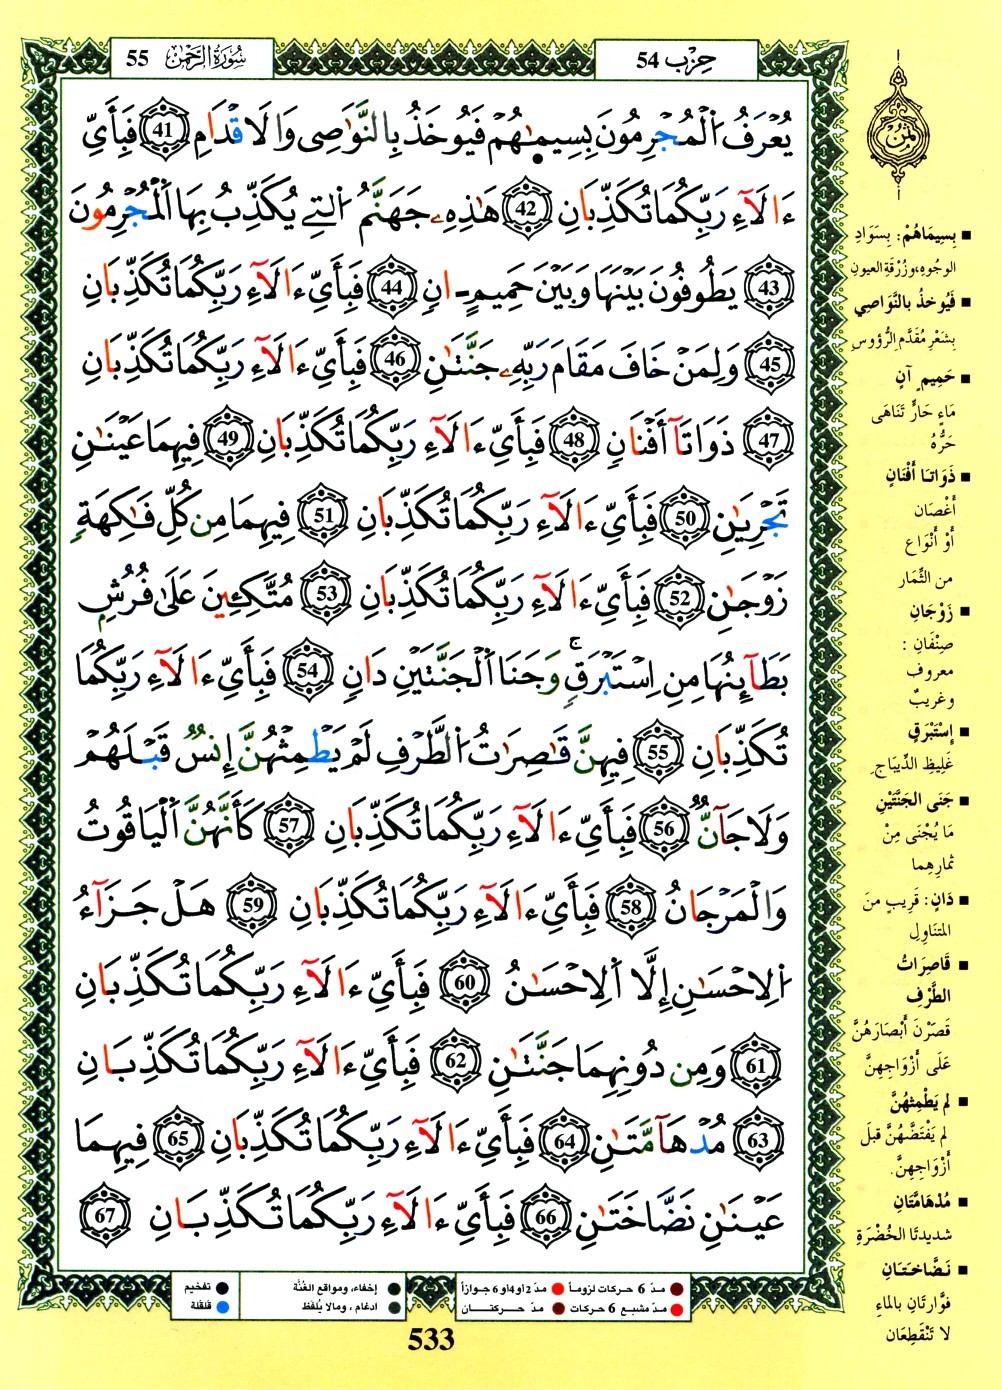 حِزْب 54
سُورَةُ الرَّحْمٰن 55
يُعْرَفُ اُ۬لْمُجْرِمُونَ بِسِيمٰ۪هُمْ فَيُوخَذُ بِالنَّوَٰصِے وَالَاقْدَامِ 41 فَبِأَيِّ
ءَالَآءِ رَبِّكُمَا تُكَذِّبَانِ 42 هَٰذِهِۦ جَهَنَّمُ اُ۬لتِے يُكَذِّبُ بِهَا اَ۬لْمُجْرِمُونَ
43 يَطُوفُونَ بَيْنَهَا وَبَيْنَ حَمِيمٍ ـ انٍ 44 فَبِأَيِّ ءَالَآءِ رَبِّكُمَا تُكَذِّبَانِ
45 وَلِمَنْ خَافَ مَقَامَ رَبِّهِۦ جَنَّتَٰنِ 46 فَبِأَيِّ ءَالَآءِ رَبِّكُمَا تُكَذِّبَانِ
47 ذَوَاتَآ أَفْنَانٍ 48 فَبِأَيِّ ءَالَآءِ رَبِّكُمَا تُكَذِّبَانِ 49 فِيهِمَا عَيْنَٰنِ
تَجْرِيَٰنِ 50 فَبِأَيِّ ءَالَآءِ رَبِّكُمَا تُكَذِّبَانِ 51 فِيهِمَا مِن كُلِّ فَٰكِهَةٍ
زَوْجَٰنِ 52 فَبِأَيِّ ءَالَآءِ رَبِّكُمَا تُكَذِّبَانِ 53 مُتَّكِـِٕينَ عَلَىٰ فُرُشٍ
بَطَآئِنُهَا مِنِ اِسْتَبْرَقٍۖ وَجَنَا اَ۬لْجَنَّتَيْنِ دَانٍ 54 فَبِأَيِّ ءَالَآءِ رَبِّكُمَا
تُكَذِّبَانِ 55 فِيهِنَّ قَٰصِرَٰتُ اُ۬لطَّرْفِ لَمْ يَطْمِثْهُنَّ إِنسٌ قَبْلَهُمْ
وَلَا جَآنٌّ 56 فَبِأَيِّ ءَالَآءِ رَبِّكُمَا تُكَذِّبَانِ 57 كَأَنَّهُنَّ اَ۬لْيَاقُوتُ
وَالْمَرْجَانُ 58 فَبِأَيِّ ءَالَآءِ رَبِّكُمَا تُكَذِّبَانِ 59 هَلْ جَزَآءُ
اُ۬لِاحْسَٰنِ إِلَّا اَ۬لِاحْسَٰنُ 60 فَبِأَيِّ ءَالَآءِ رَبِّكُمَا تُكَذِّبَانِ
61 وَمِن دُونِهِمَا جَنَّتَٰنِ 62 فَبِأَيِّ ءَالَآءِ رَبِّكُمَا تُكَذِّبَانِ
63 مُدْهَآمَّتَٰنِ 64 فَبِأَيِّ ءَالَآءِ رَبِّكُمَا تُكَذِّبَانِ 65 فِيهِمَا
عَيْنَٰنِ نَضَّاخَتَٰنِ 66 فَبِأَيِّ ءَالَآءِ رَبِّكُمَا تُكَذِّبَانِ 67
ثُمُن
بِسِيمَاهُمْ: بِسَوَادِ
الوجُوهِ، وزُرْقَةِ العيونِ
فَيُوخذُ بالنَّوَاصِي
بِشَعْرِ مُقَدَّمِ الرُّؤوسِ
حَمِيمٍ آنٍ
مَاءٍ حَارٍّ تَنَاهَى
حَرُّهُ
ذَوَاتـَا أَفْنَانٍ
أَغْصَان
أَوْ أَنْوَاع
من الثِّمَار
زَوْجَانِ
صِنْفَانِ :
معروف
وغريبٌ
إِسْتَبْرَقٍ
غَلِيظِ الدِّيبَاجِ
جَنَى الجَنَّتَيْنِ
مَا يُجْنَى مِنْ
ثمارِهِما
دَانٍ: قَرِيبٍ منَ
المتنَاوِلِ
قَاصِرَاتُ
الطَّرْفِ
قَصَرْنَ أَبْصَارَهُنَّ
عَلَى أَزْوَاجِهِنَّ
لم يَطْمِثهُنَّ
لم يَفْتَضَّهُنَّ قبلَ
أَزْوَاجِهِنَّ.
مُدْهَامَّتَانِ
شديدتَا الخُضْرَةِ
نَـضَّاخـتَـانِ
فوَّارتَانِ بالماءِ
لا تَنْقَطِعَان
مدّ 6 حركات لزوماً مدّ 2 او 4 او 6 جوازاً إخفاء، ومواقع الغُنَّة تفخيم
مدّ مشبع 6 حركات مدّ حـــركتـــان ادغام ، ومالا يُلفَظ قلقلة
533